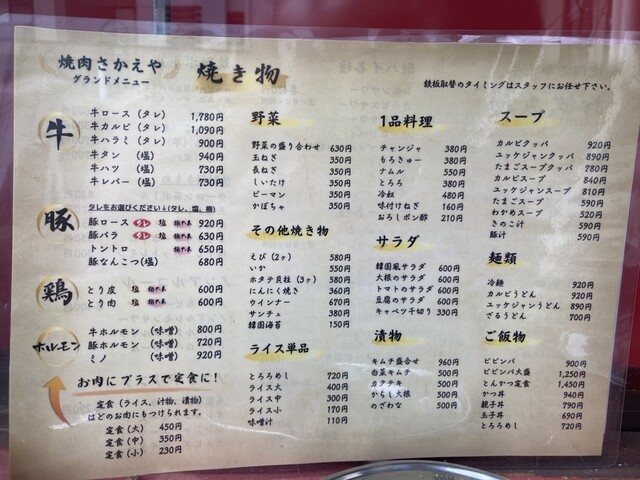 焼肉さかえや
グランドメニュー
焼き物
鉄板取替のタイミングはスタッフにお任せ下さい。
牛
牛ロース (タレ) 1,780円
牛カルビ (タレ) 1,090円
牛ハラミ (タレ) 900円
牛タン (塩) 940円
牛ハツ (塩) 730円
牛レバー (塩) 730円
豚
タレをお選びください↓(タレ、塩、梅)
豚ロース タレ 塩 920円
豚バラ タレ 塩 630円
トントロ 塩 650円
豚なんこつ(塩) 680円
鶏
とり皮 塩 600円
とり肉 塩 600円
ホルモン
牛ホルモン (味噌) 800円
豚ホルモン (味噌) 720円
ミノ (味噌) 920円
お肉にプラスで定食に!
定食(ライス、汁物、漬物)
はどのお肉にもつけられます。
定食(大) 450円
定食(中) 350円
定食(小) 230円
野菜
野菜の盛り合わせ 630円
玉ねぎ 350円
長ねぎ 350円
しいたけ 350円
ピーマン 350円
かぼちゃ 350円
その他焼き物
えび(2ヶ) 580円
いか 550円
ホタテ貝柱(3ヶ) 580円
にんにく焼き 360円
ウインナー 670円
サンチュ 380円
韓国海苔 150円
ライス単品
とろろめし 720円
ライス大 400円
ライス中 300円
ライス小 170円
味噌汁 110円
1品料理
チャンジャ 380円
もろきゅー 380円
ナムル 550円
とろろ 380円
冷奴 480円
味付けねぎ 160円
おろしポン酢 210円
サラダ
韓国風サラダ 600円
大根のサラダ 600円
トマトのサラダ 600円
豆腐のサラダ 600円
キャベツ千切り 330円
漬物
キムチ盛合せ 960円
白菜キムチ 500円
カクテキ 500円
からし大根 500円
のざわな 500円
スープ
カルビクッパ 920円
ユッケジャンクッパ 890円
たまごスープクッパ 780円
カルビスープ 840円
ユッケジャンスープ 810円
たまごスープ 590円
わかめスープ 520円
きのこ汁 590円
豚汁 590円
麺類
冷麺 920円
カルビうどん 920円
ユッケジャンうどん 890円
ざるうどん 700円
ご飯物
ビビンバ 900円
ビビンバ大盛 1,250円
とんかつ定食 1,450円
かつ丼 940円
親子丼 790円
玉子丼 690円
とろろめし 720円